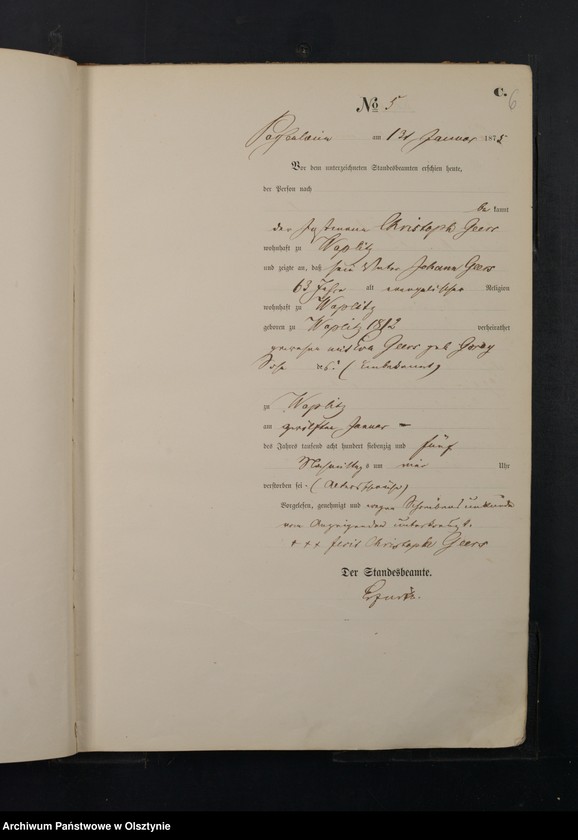 C.
6
No 5
am 13t Januar 1875
Vor dem unterzeichneten Standesbeamten erschien heute,
der Person nach
be kannt
der Christoph Geers
wohnhaft zu Waplitz
und zeigte an, daß sein Vater Johann Geers
63 Jahr alt evangelischer Religion
wohnhaft zu Waplitz
geboren zu Waplitz 1812 verheirathet
gewesen mit Geers geb
Sohn des: (Unbekannt)
zu Waplitz
am zwölften Januar
des Jahres tausend acht hundert siebenzig und fünf
Nachmittags um vier Uhr
verstorben sei. (Altersschwäche)
Vorgelesen, genehmigt und wegen Schreibensunkunde
vom Anzeigenden unterkreuzt.
+++ fecit Christoph Geers
Der Standesbeamte.
Archiwum Państwowe w Olsztynie